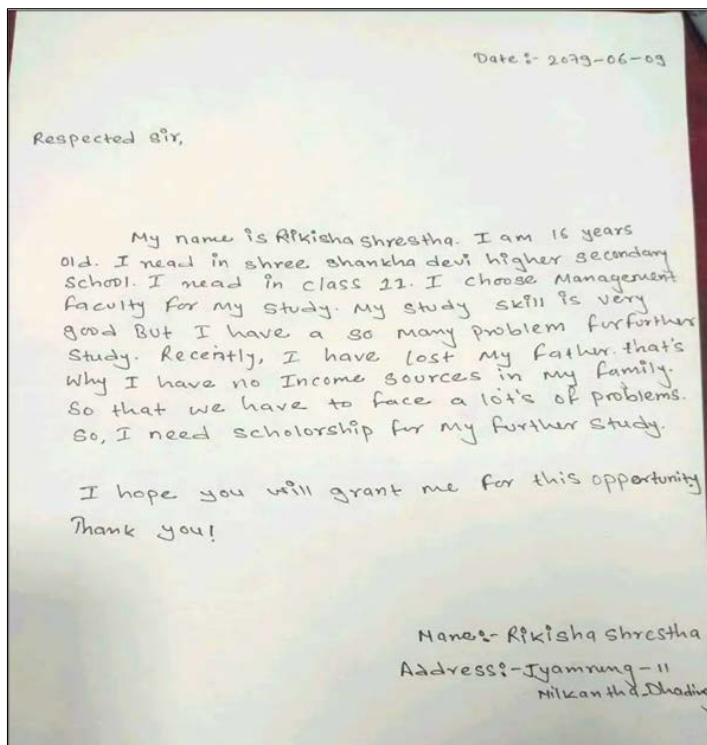 Date:- 2079-06-09
Respected Sir,
My name is Rikisha Shrestha. I am 16 years
old. I read in shree shankha devi higher secondary
School. I read in class 11. I choose Management
faculty for my study. My study skill is very
good But I have a so many problem furfurther
Study. Recently, I have lost my father. that's
why I have no Income sources in my family.
So that we have to face a lot's of problems.
So, I need scholorship for my further study.
I hope you will grant me for this opportunity
Thank you!
Name:- Rikisha Shrestha
Address:- Jyamrung-11
Nilkantha-Dhading